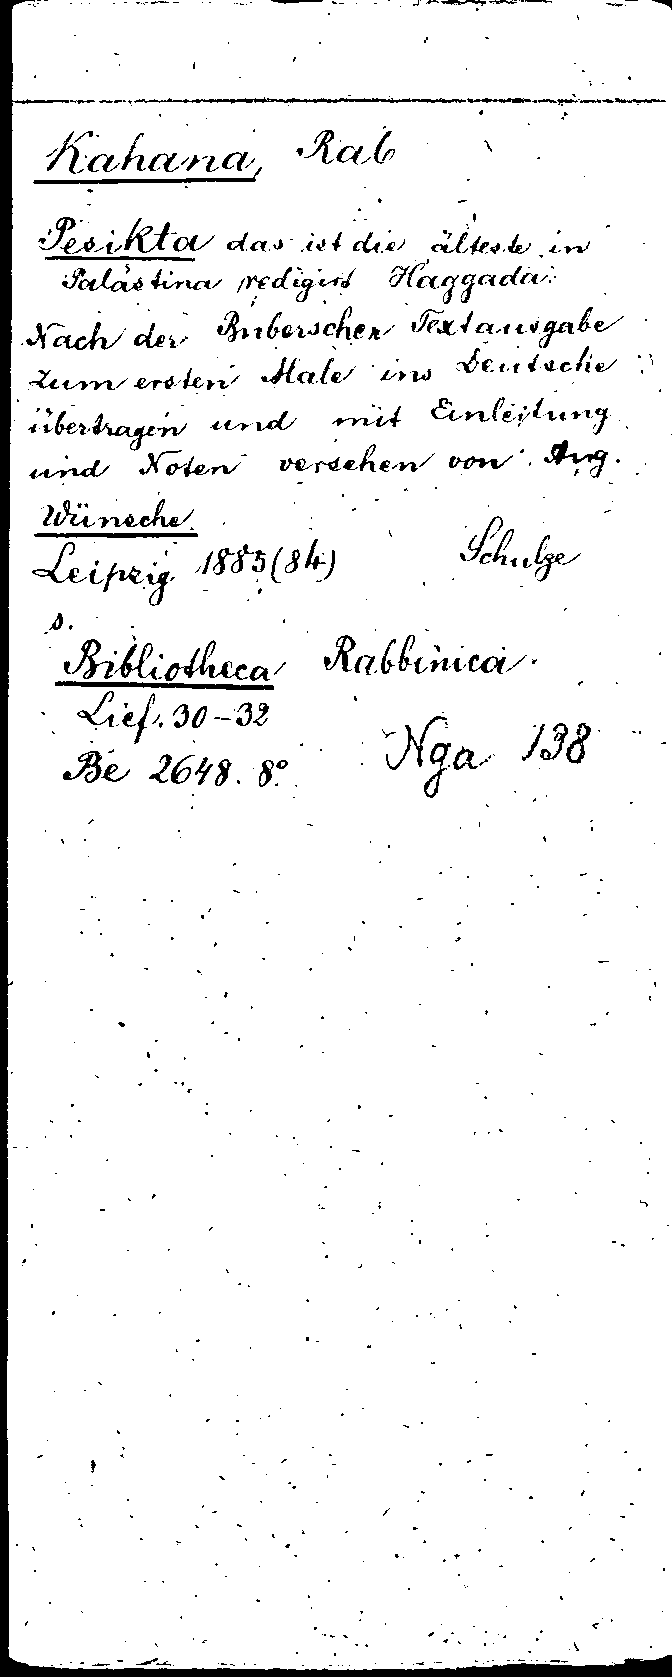 Kahana, Rab
Pesikta das ist die älteste in
Palästina redigirt Haggada.
Nach der Buberschen Textausgabe
zum ersten Male ins Deutsche
übertragen und mit Einleitung
und Noten versehen von Aug.
Wünsche.
Leipzig 1885(84) Schulze
s.
Bibliotheca Rabbinica.
Lief. 30-32
Be 2648. 8° Nga 138